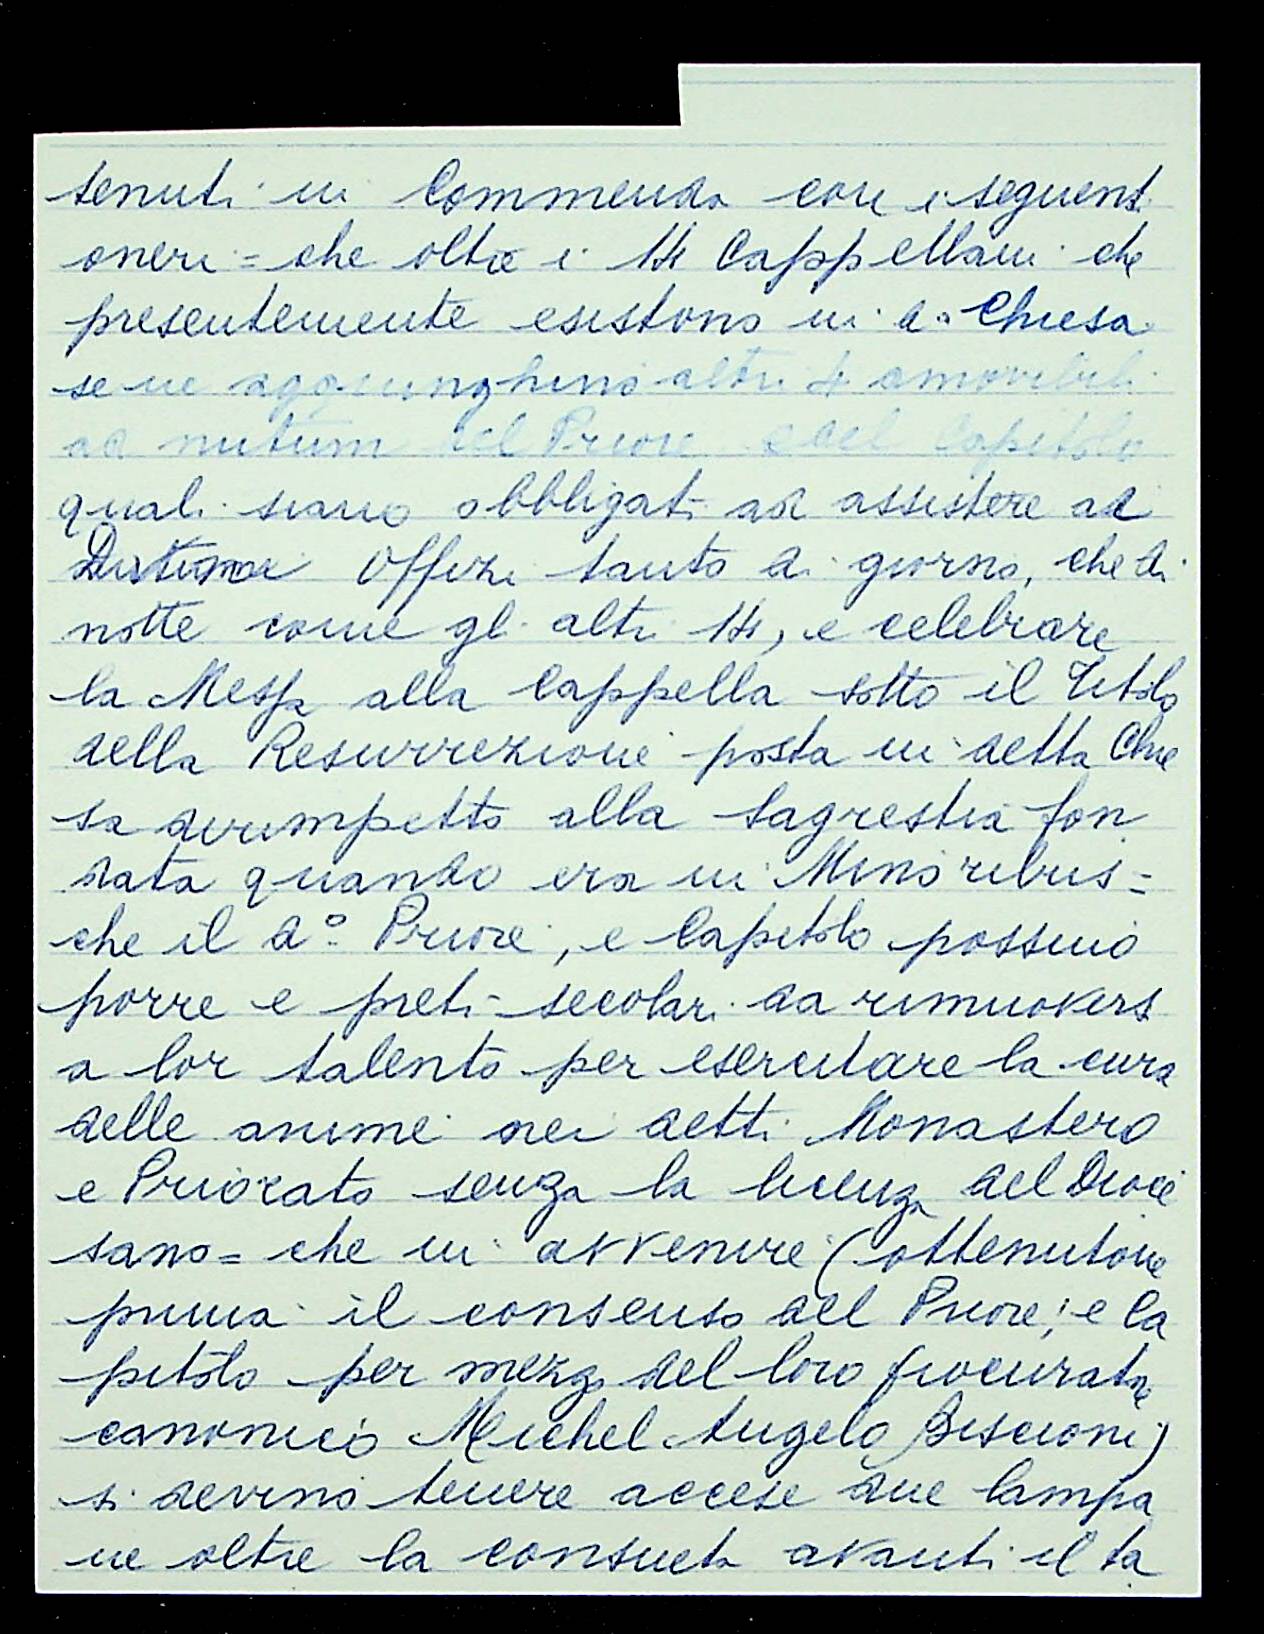 tenuti in Commenda con i seguenti
oneri = che oltre i 14 Cappellani che
presentemente esistono in d.a Chiesa
se ne aggiunghino altri 4 amovibili
ad nutum del Priore e del Capitolo
quali siano obbligati ad assistere ad
Offizi tanto di giorno, che di
notte come gl altri 14, e celebrare
la Messa alla Cappella sotto il Titolo
della Resurrezione posta in detta Chie
sa dirimpetto alla Sagrestia fon
data quando era in Minoribus =
che il d.o Priore, e Capitolo possino
porre e preti secolari da rimuoversi
a lor talento per esercitare la cura
delle anime nei detti Monastero
e Priorato senza la licenza del Dioce
sano = che in avvenire (ottenutone
prima il consenso del Priore, e Ca
pitolo per mezzo del loro procuratore
canonico Michel Angelo Biscioni)
si devino tenere accese due lampa
ne oltre la consueta avanti il ta